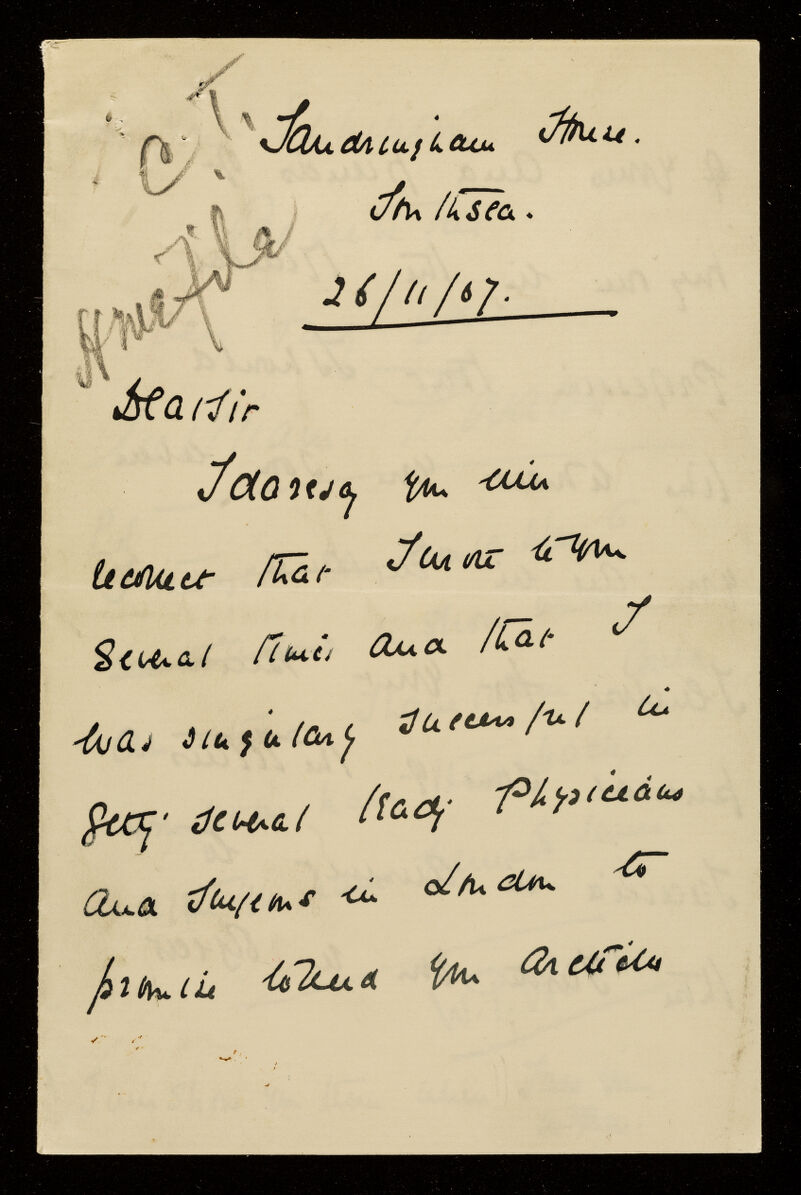 C. T.
file
Sandringham House.
Southsea.
26/11/07.
Dear Sir
I daresay you will
recollect that I wrote to you
several times and that I
was singulary successful in
gettg several leadg Physicians
and Surgeons in London to
promise to send you articles